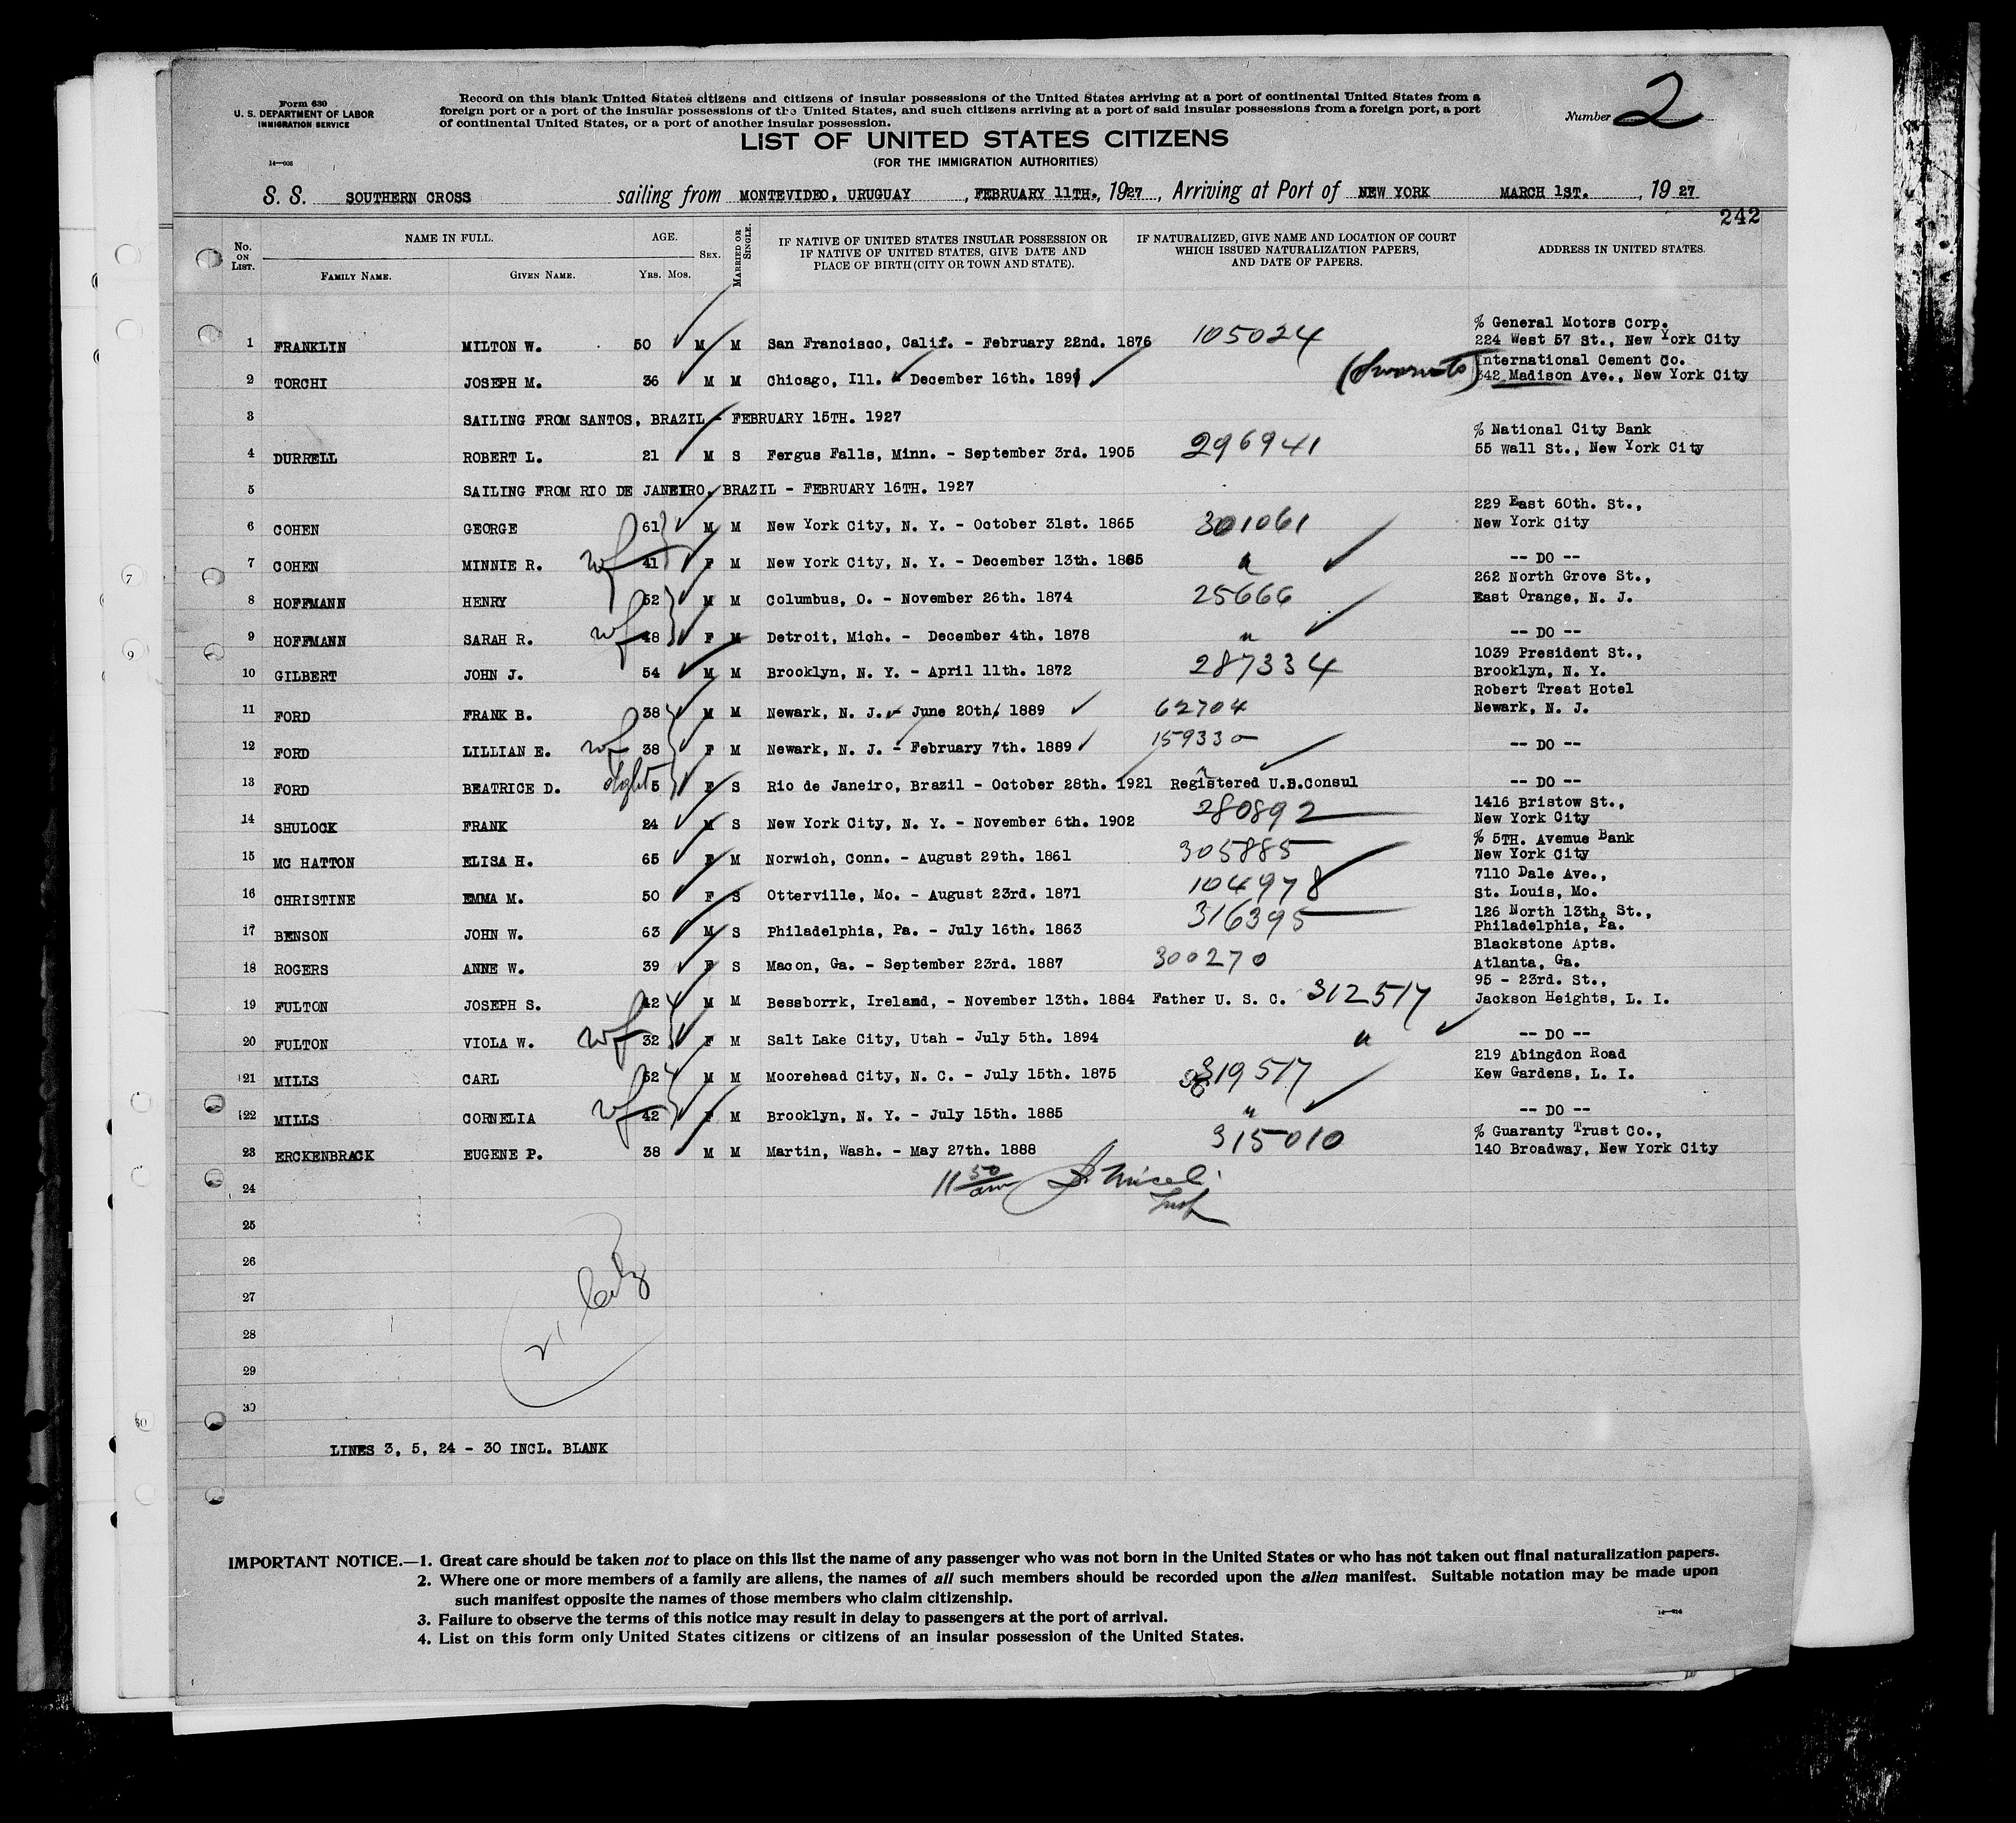 Form 630
U. S. DEPARTMENT OF LABOR
IMMIGRATION SERVICE
14—608
Record on this blank United States citizens and citizens of insular possessions of the United States arriving at a port of continental United States from a
foreign port or a port of the insular possessions of the United States, and such citizens arriving at a port of said insular possessions from a foreign port, a port
of continental United States, or a port of another insular possession.
Number 2
LIST OF UNITED STATES CITIZENS
(FOR THE IMMIGRATION AUTHORITIES)
S. S. SOUTHERN CROSS sailing from MONTEVIDEO, URUGUAY , FEBRUARY 11TH., 1927 , Arriving at Port of NEW YORK MARCH 1ST. , 19 27
242
No. ON LIST. NAME IN FULL. AGE. SEX. MARRIED OR SINGLE. IF NATIVE OF UNITED STATES INSULAR POSSESSION OR IF NATIVE OF UNITED STATES, GIVE DATE AND PLACE OF BIRTH (CITY OR TOWN AND STATE). IF NATURALIZED, GIVE NAME AND LOCATION OF COURT WHICH ISSUED NATURALIZATION PAPERS, AND DATE OF PAPERS. ADDRESS IN UNITED STATES.
FAMILY NAME. GIVEN NAME. YRS. MOS.
% General Motors Corp.
1 FRANKLIN MILTON W. 50 M M San Francisco, Calif. - February 22nd. 1876 105024 224 West 57 St., New York City
International Cement Co.
2 TORCHI JOSEPH M. 36 M M Chicago, Ill. - December 16th. 1891 342 Madison Ave., New York City
3 SAILING FROM SANTOS, BRAZIL - FEBRUARY 15TH. 1927
% National City Bank
4 DURRELL ROBERT L. 21 M S Fergus Falls, Minn. - September 3rd. 1905 296941 55 Wall St., New York City
5 SAILING FROM RIO DE JANEIRO, BRAZIL - FEBRUARY 16TH. 1927
229 East 60th. St.,
6 COHEN GEORGE 61 M M New York City, N. Y. - October 31st. 1865 301061 New York City
7 COHEN MINNIE R. wf 41 F M New York City, N. Y. - December 13th. 1885 " -- DO --
262 North Grove St.,
8 HOFFMANN HENRY 52 M M Columbus, O. - November 26th. 1874 25666 East Orange, N. J.
9 HOFFMANN SARAH R. wf 48 F M Detroit, Mich. - December 4th. 1878 " -- DO --
1039 President St.,
10 GILBERT JOHN J. 54 M M Brooklyn, N. Y. - April 11th. 1872 287334 Brooklyn, N. Y.
Robert Treat Hotel
11 FORD FRANK B. 38 M M Newark, N. J. - June 20th. 1889 62704 Newark, N. J.
12 FORD LILLIAN E. wf 38 F M Newark, N. J. - February 7th. 1889 159330 -- DO --
13 FORD BEATRICE D. dght 5 F S Rio de Janeiro, Brazil - October 28th. 1921 Registered U.S.Consul -- DO --
1416 Bristow St.,
14 SHULOCK FRANK 24 M S New York City, N. Y. - November 6th. 1902 280892 New York City
% 5TH. Avemue Bank
15 MC HATTON ELISA H. 65 F M Norwich, Conn. - August 29th. 1861 305885 New York City
7110 Dale Ave.,
16 CHRISTINE EMMA M. 50 F S Otterville, Mo. - August 23rd. 1871 104978 St. Louis, Mo.
126 North 13th. St.,
17 BENSON JOHN W. 63 M S Philadelphia, Pa. - July 16th. 1863 316395 Philadelphia, Pa.
Blackstone Apts.
18 ROGERS ANNE W. 39 F S Macon, Ga. - September 23rd. 1887 300270 Atlanta, Ga.
95 - 23rd. St.,
19 FULTON JOSEPH S. 42 M M Bessborrk, Ireland, - November 13th. 1884 Father U. S. C. 312517 Jackson Heights, L. I.
20 FULTON VIOLA W. wf 32 F M Salt Lake City, Utah - July 5th. 1894 " -- DO --
219 Abingdon Road
21 MILLS CARL 52 M M Moorehead City, N. C. - July 15th. 1875 319517 Kew Gardens, L. I.
22 MILLS CORNELIA wf 42 F M Brooklyn, N. Y. - July 15th. 1885 " -- DO --
% Guaranty Trust Co.,
23 ERCKENBRACK EUGENE P. 38 M M Martin, Wash. - May 27th. 1888 315010 140 Broadway, New York City
24 11 50 am Insp
25
26
27
28
29
30
LINES 3, 5, 24 - 30 INCL. BLANK
IMPORTANT NOTICE.—1. Great care should be taken not to place on this list the name of any passenger who was not born in the United States or who has not taken out final naturalization papers.
2. Where one or more members of a family are aliens, the names of all such members should be recorded upon the alien manifest. Suitable notation may be made upon
such manifest opposite the names of those members who claim citizenship.
3. Failure to observe the terms of this notice may result in delay to passengers at the port of arrival.
4. List on this form only United States citizens or citizens of an insular possession of the United States.
7
9
30